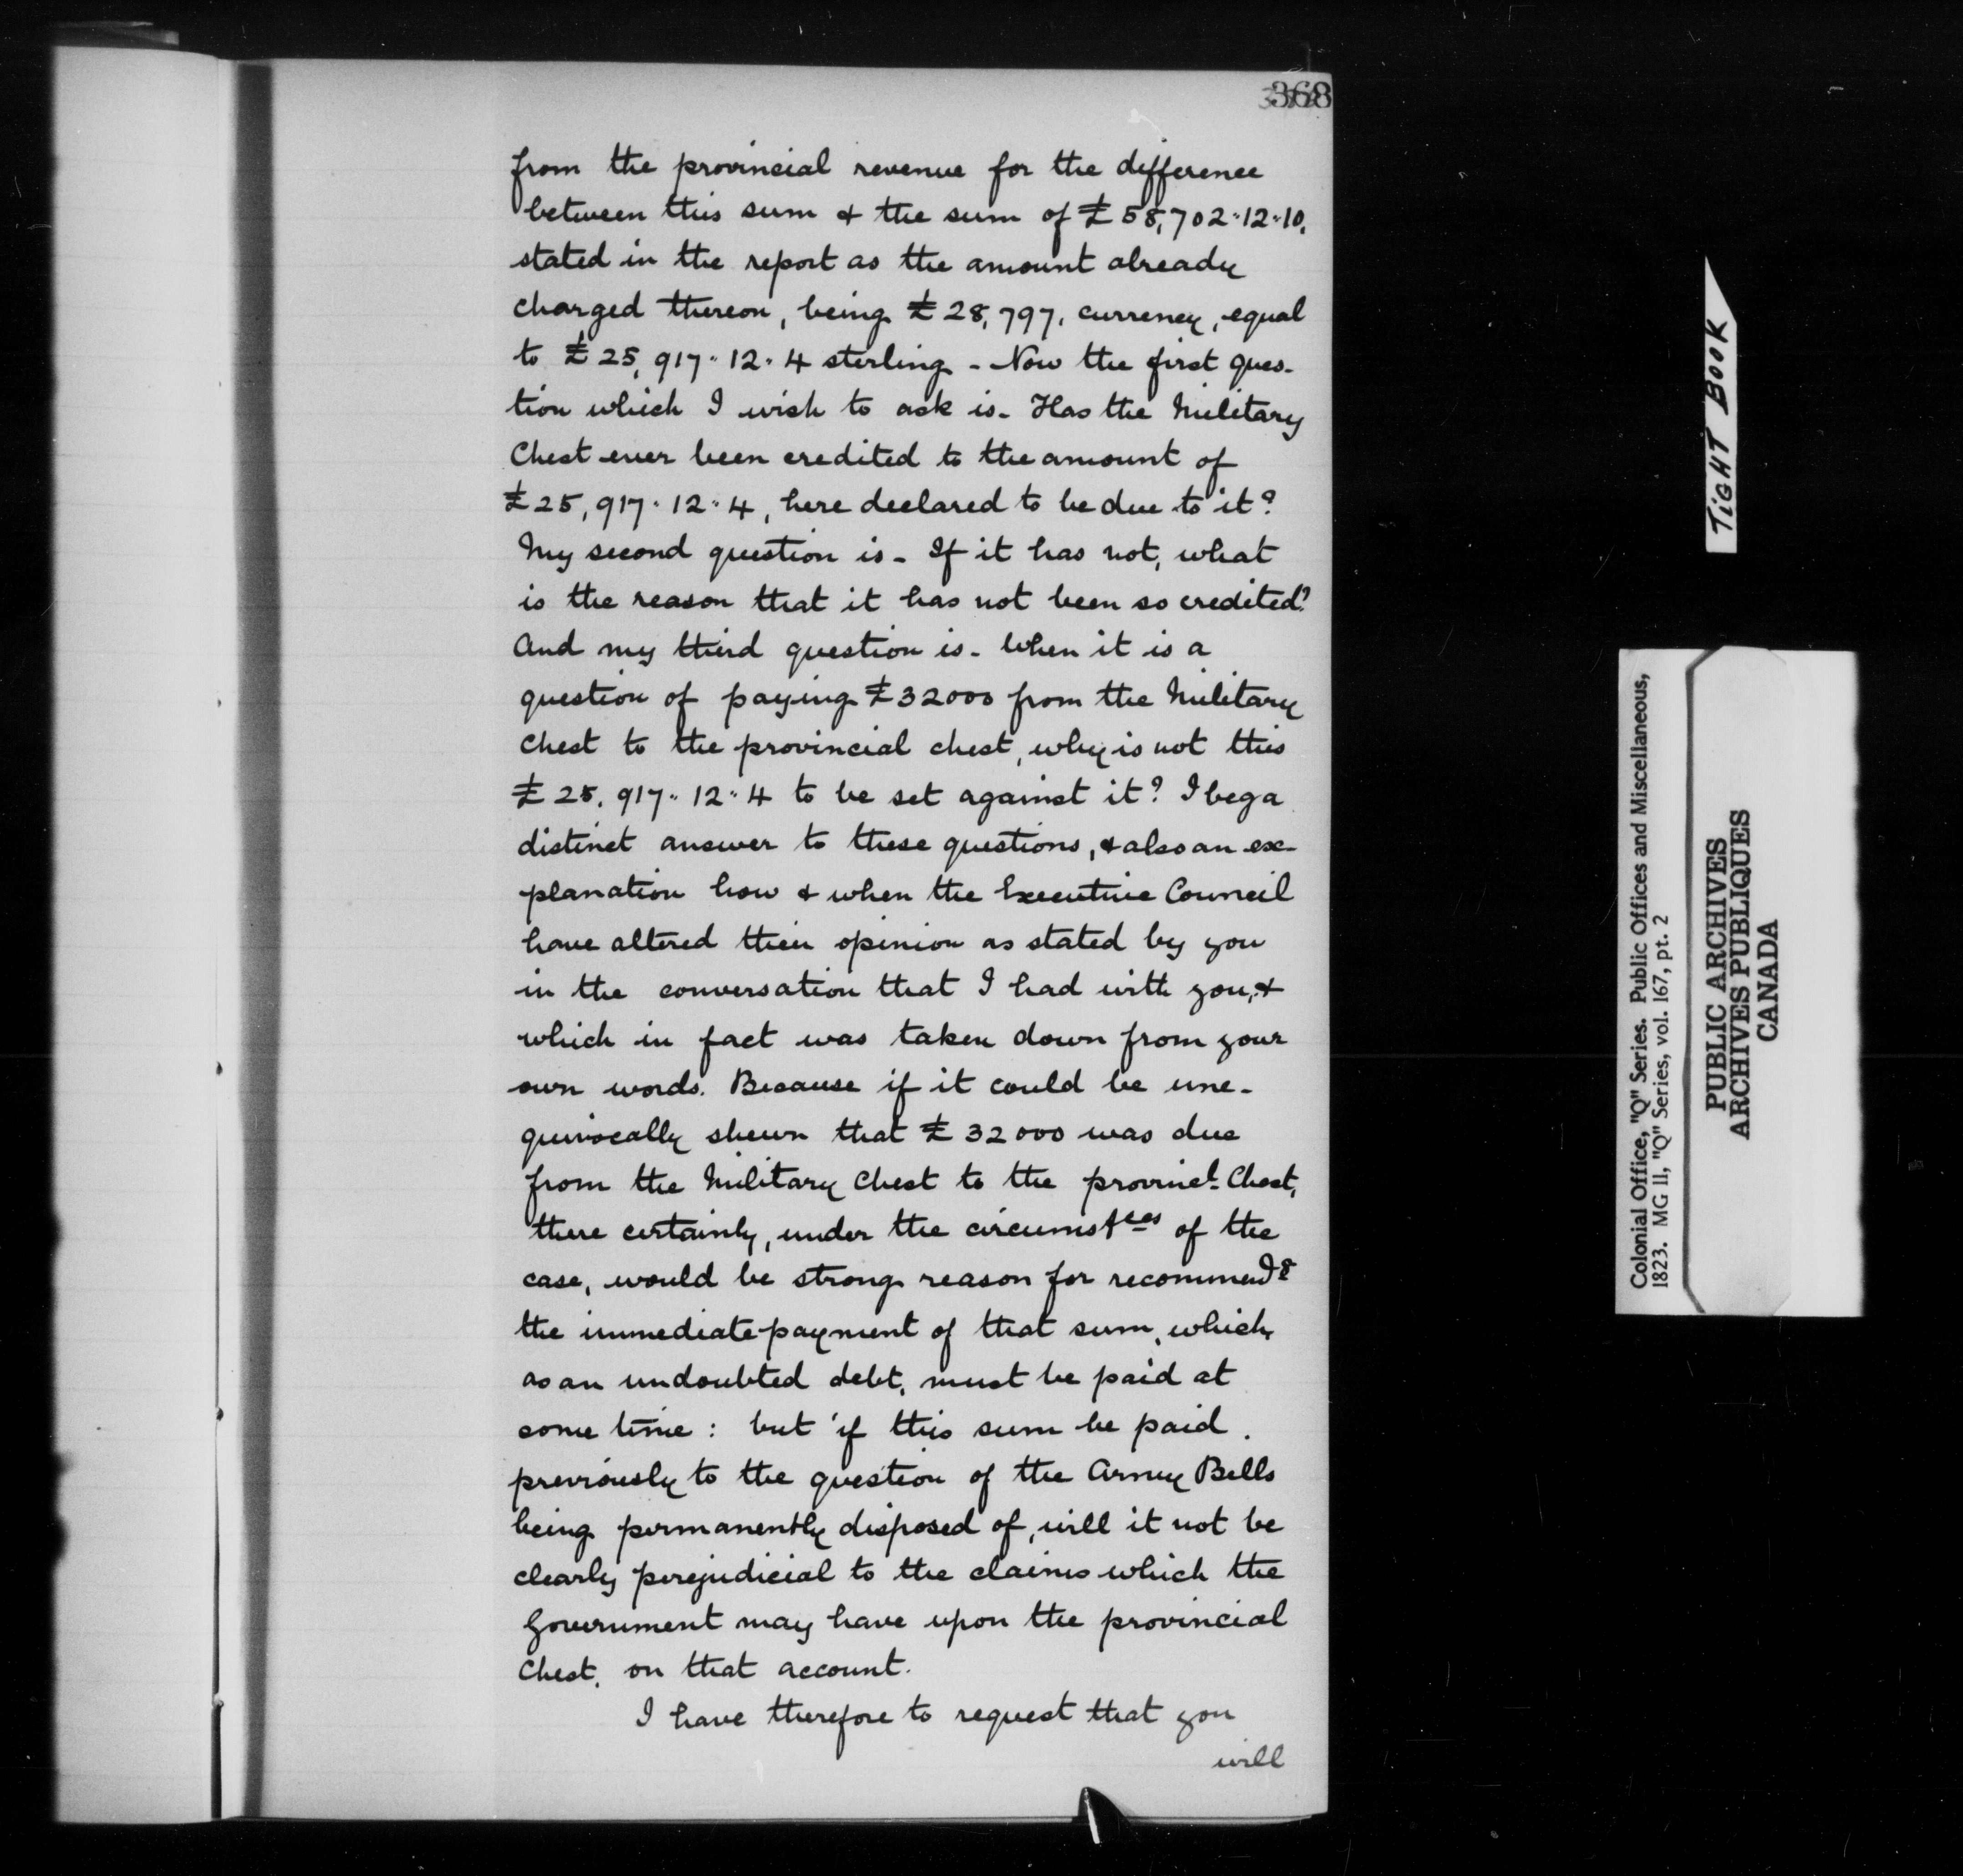 368
from the provincial revenue for the difference
between this sum & the sum of £58,702"12"10,
stated in the report as the amount already
charged thereon, being £28,797, currency, equal
to £25,917"12"4 sterling - Now the first ques-
tion which I wish to ask is - Has the Military
Chest ever been credited to the amount of
£25,917"12"4, here declared to be due to it?
My second question is - If it has not, what
is the reason that it has not been so credited?
And my third question is - When it is a
question of paying £32000 from the Military
chest to the provincial chest, why is not this
£25,917"12"4 to be set against it? I beg a
distinct answer to these questions, & also an ex-
planation how & when the Executive Council
have altered their opinion as stated by you
in the conversation that I had with you, &
which in fact was taken down from your
own words. Because if it could be une-
quivocally shewn that £32000 was due
from the Military Chest to the provincl. Chest,
there certainly, under the circumstces of the
case, would be strong reason for recommendg
the immediate payment of that sum, which,
as an undoubted debt, must be paid at
some time: but if this sum be paid
previously to the question of the Army Bills
being permanently disposed of, will it not be
clearly perejudicial to the claims which the
Government may have upon the provincial
Chest, on that account.
I have therefore to request that you
will
TIGHT BOOK
Colonial Office, "Q" Series. Public Offices and Miscellaneous,
1823. MG 11, "Q" Series, vol. 167, pt. 2
PUBLIC ARCHIVES
ARCHIVES PUBLIQUES
CANADA